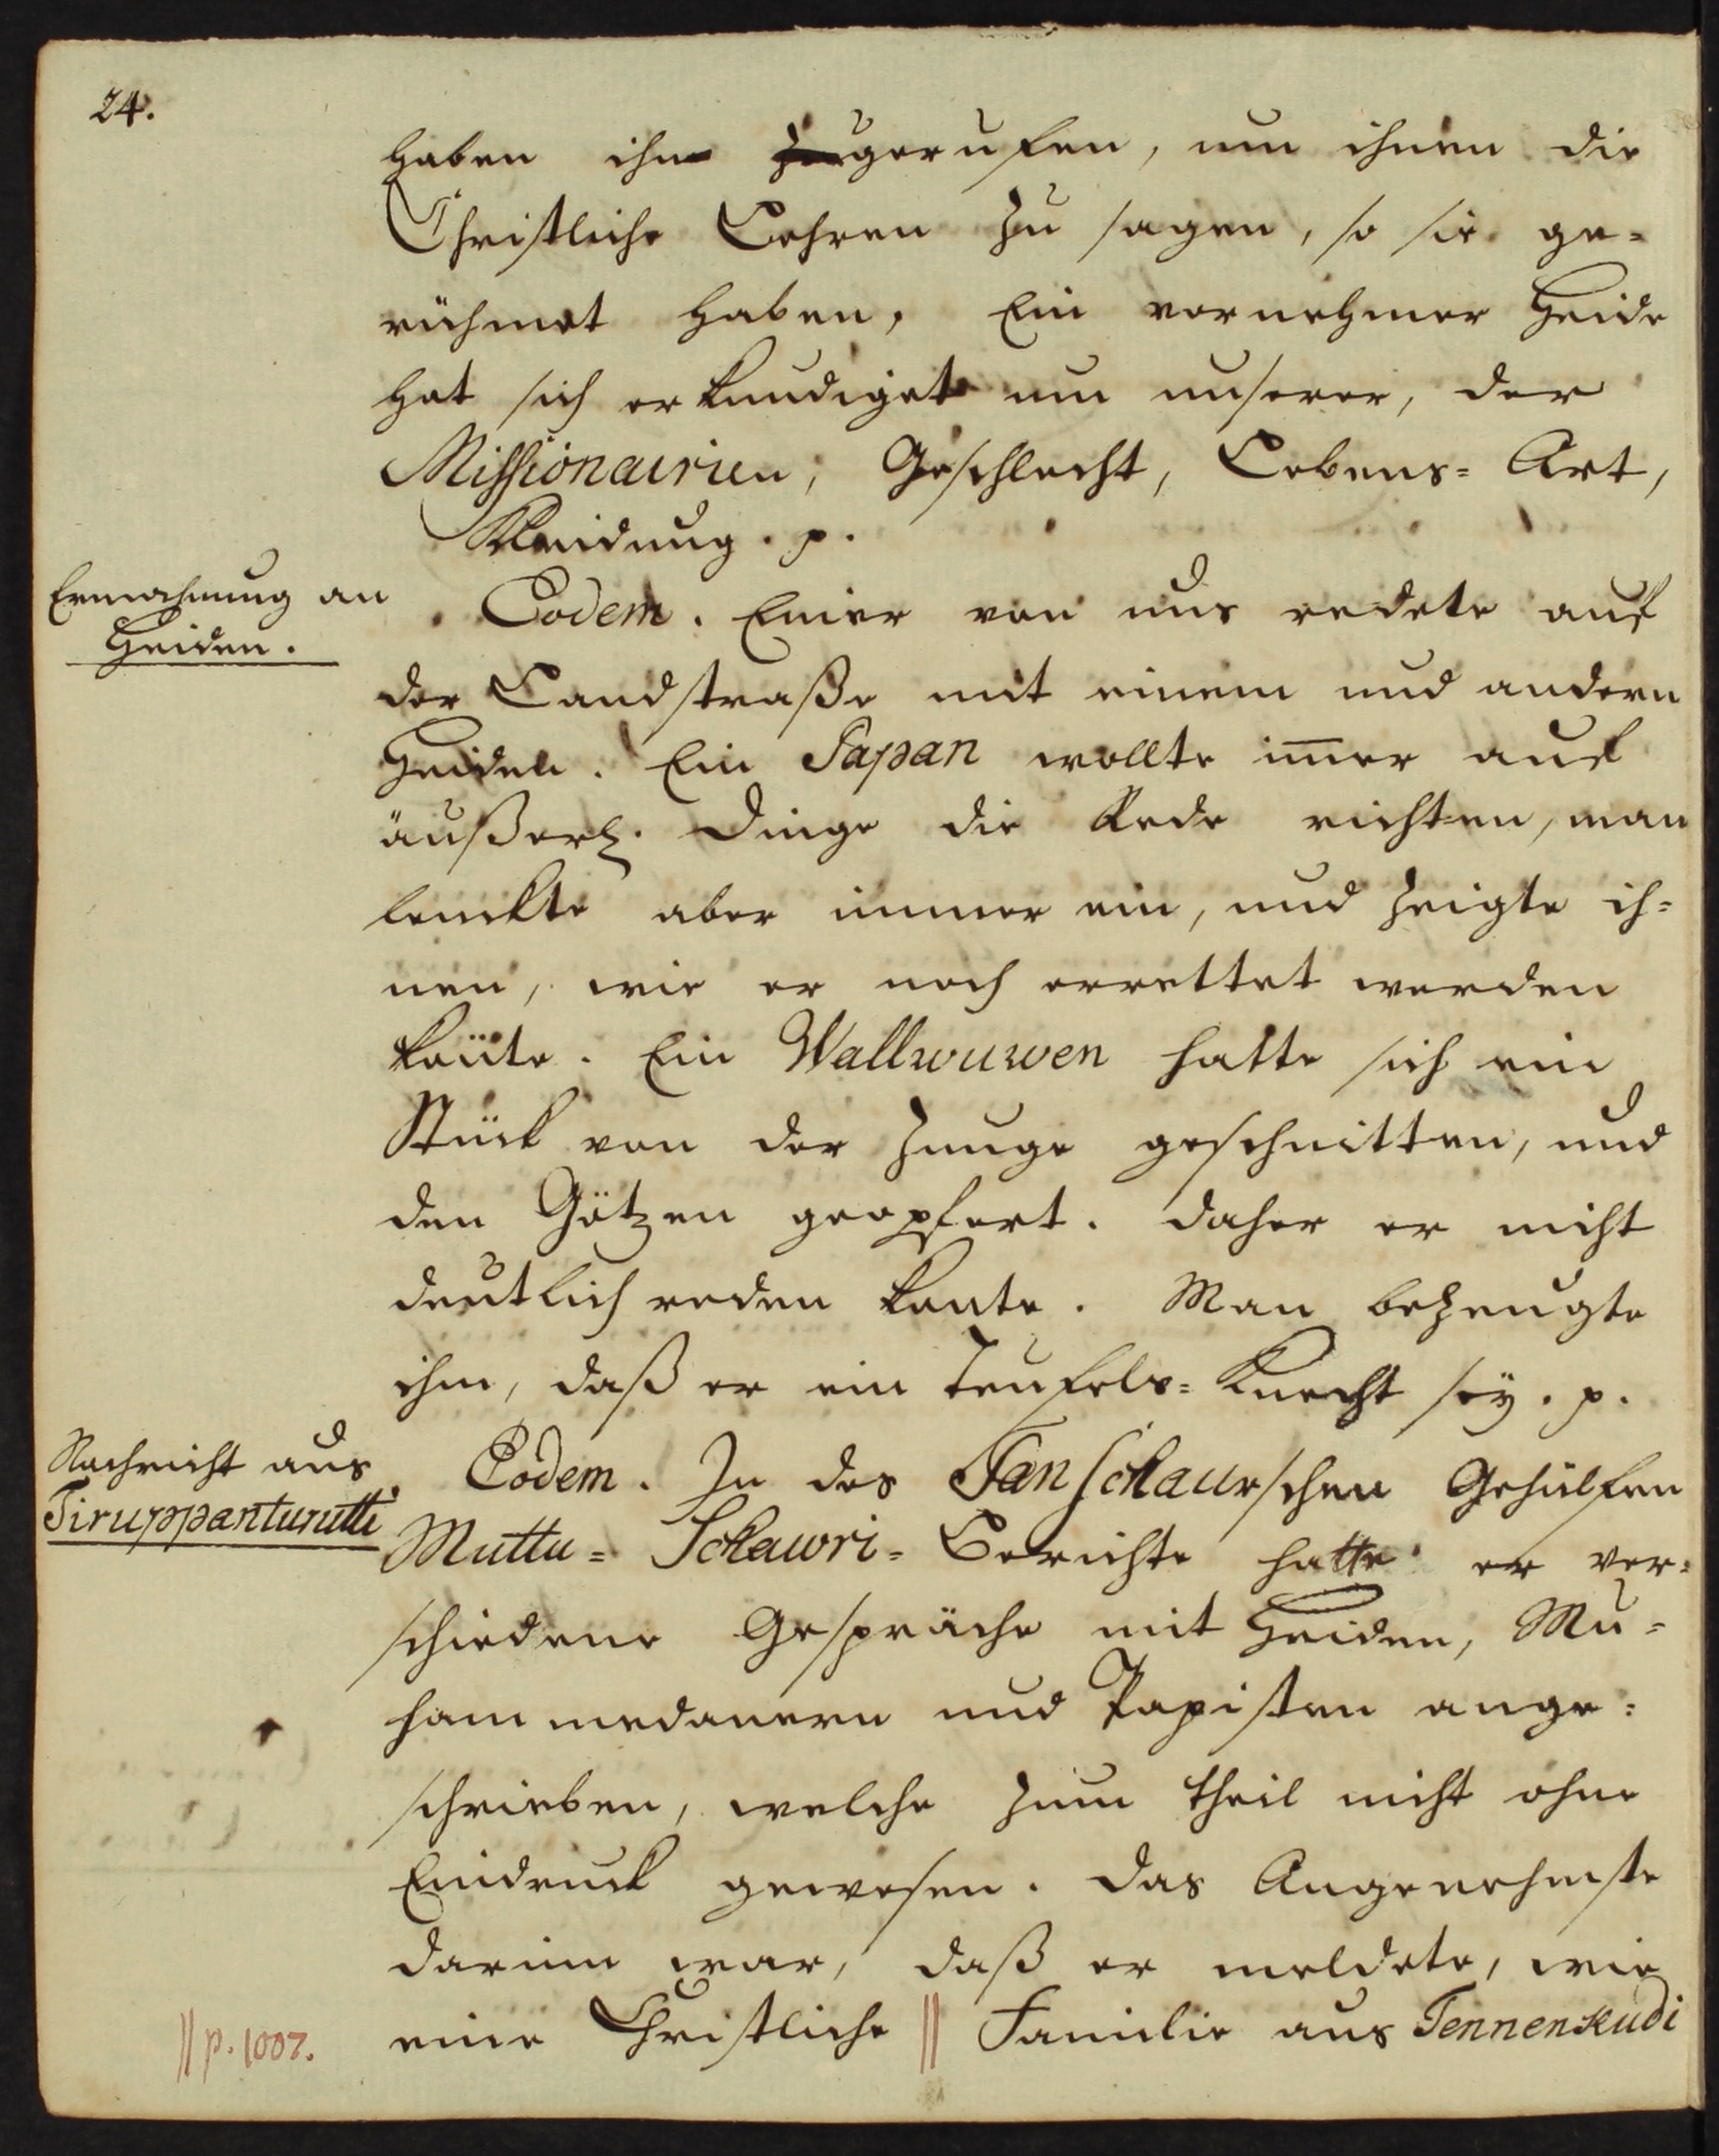 24.
haben ihn zugerufen, um ihnen die
Christliche Lehren zu sagen, so sie ge-
rühmet haben. Ein vornehmer Heide
hat sich erkundiget um unserer, der
Missionairien, Geschlecht, Lebens-Art,
Kleidung. p.
Ermahnung an
Heiden.
Eodem. Einer von uns redete auf
der Landstraße mit einem und andern
Heiden. Ein Sapan wollte im̅er auf
äußerl. Dinge die Rede richten, man
lenckte aber immer ein, und zeigte ih-
nen, wie er noch errettet werden
kön̅te. Ein Walluwen hatte sich ein
Stück von der Zunge geschnitten, und
den Götzen geopfert. Daher er nicht
deutlich reden konte. Man bezeugte
ihm, daß er ein Teufels-Knecht sey. p.
Nachricht aus
Tiruppanturutti
Eodem. In des Tanschaurschen Gehülfen
Muttu-Schawri-Berichte hatte er ver-
schiedene Gespräche mit Heiden, Mu-
hammedanern und Papisten ange-
schrieben, welche zum theil nicht ohne
Eindruck gewesen. Das Angenehmste
darinn war, daß er meldete, wie
eine Christliche || Familie aus Tennenkudi
|| p. 1007.